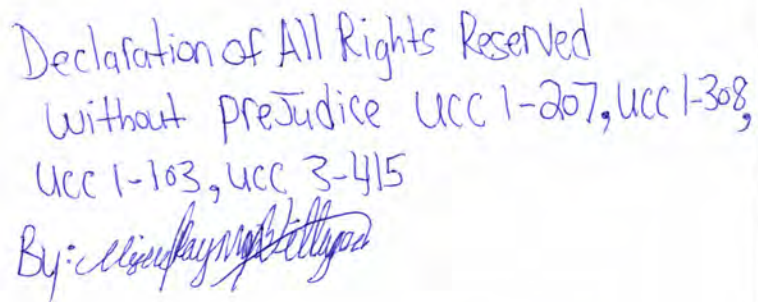 Declaration of All Rights Reserved
Without prejudice UCC 1-207, UCC 1-308,
UCC 1-103, UCC 3-415
By: